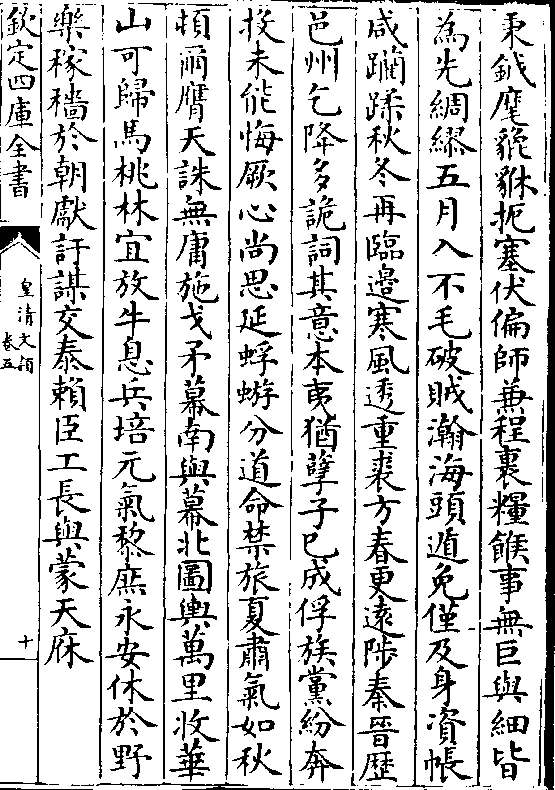 秉鉞麾貔貅扼塞伏偏師兼程裹糧餱事無巨與細皆
為先綢繆五月入不毛破賊瀚海頭遁免僅及身資帳
咸躪蹂秋冬再臨邊寒風透重裘方春更遠陟秦晉歴
邑州乞降多詭詞其意本夷猶孽子巳成俘族黨紛奔
投未能悔厥心尚思延蜉蝣分道命禁旅夏肅氣如秋
頓爾膺天誅無庸施戈矛幕南與幕北圖輿萬里收華
山可歸馬桃林宜放牛息兵培元氣黎庶永安休於野
樂稼穡於朝獻訏謀交泰賴臣工長與蒙天庥
欽定四庫全書
皇清文頴
卷五
十